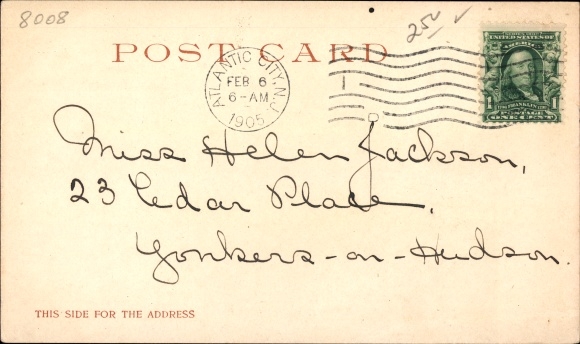 8008
25¢ ✓
POST CARD
ATLANTIC CITY, N.J.
FEB 6
6-AM
1905
1
SERIES 1902
UNITED STATES OF
AMERICA
FRANKLIN
1 1
POSTAGE
ONE CENT
Miss Helen Jackson,
23 Cedar Place,
Yonkers-on-Hudson.
THIS SIDE FOR THE ADDRESS